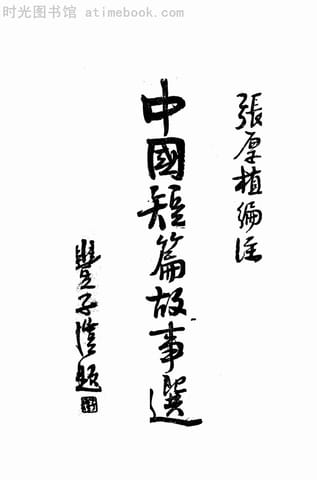 时光图书馆 atimebook.com
張厚植編注
中國短篇故事選
豐子愷題